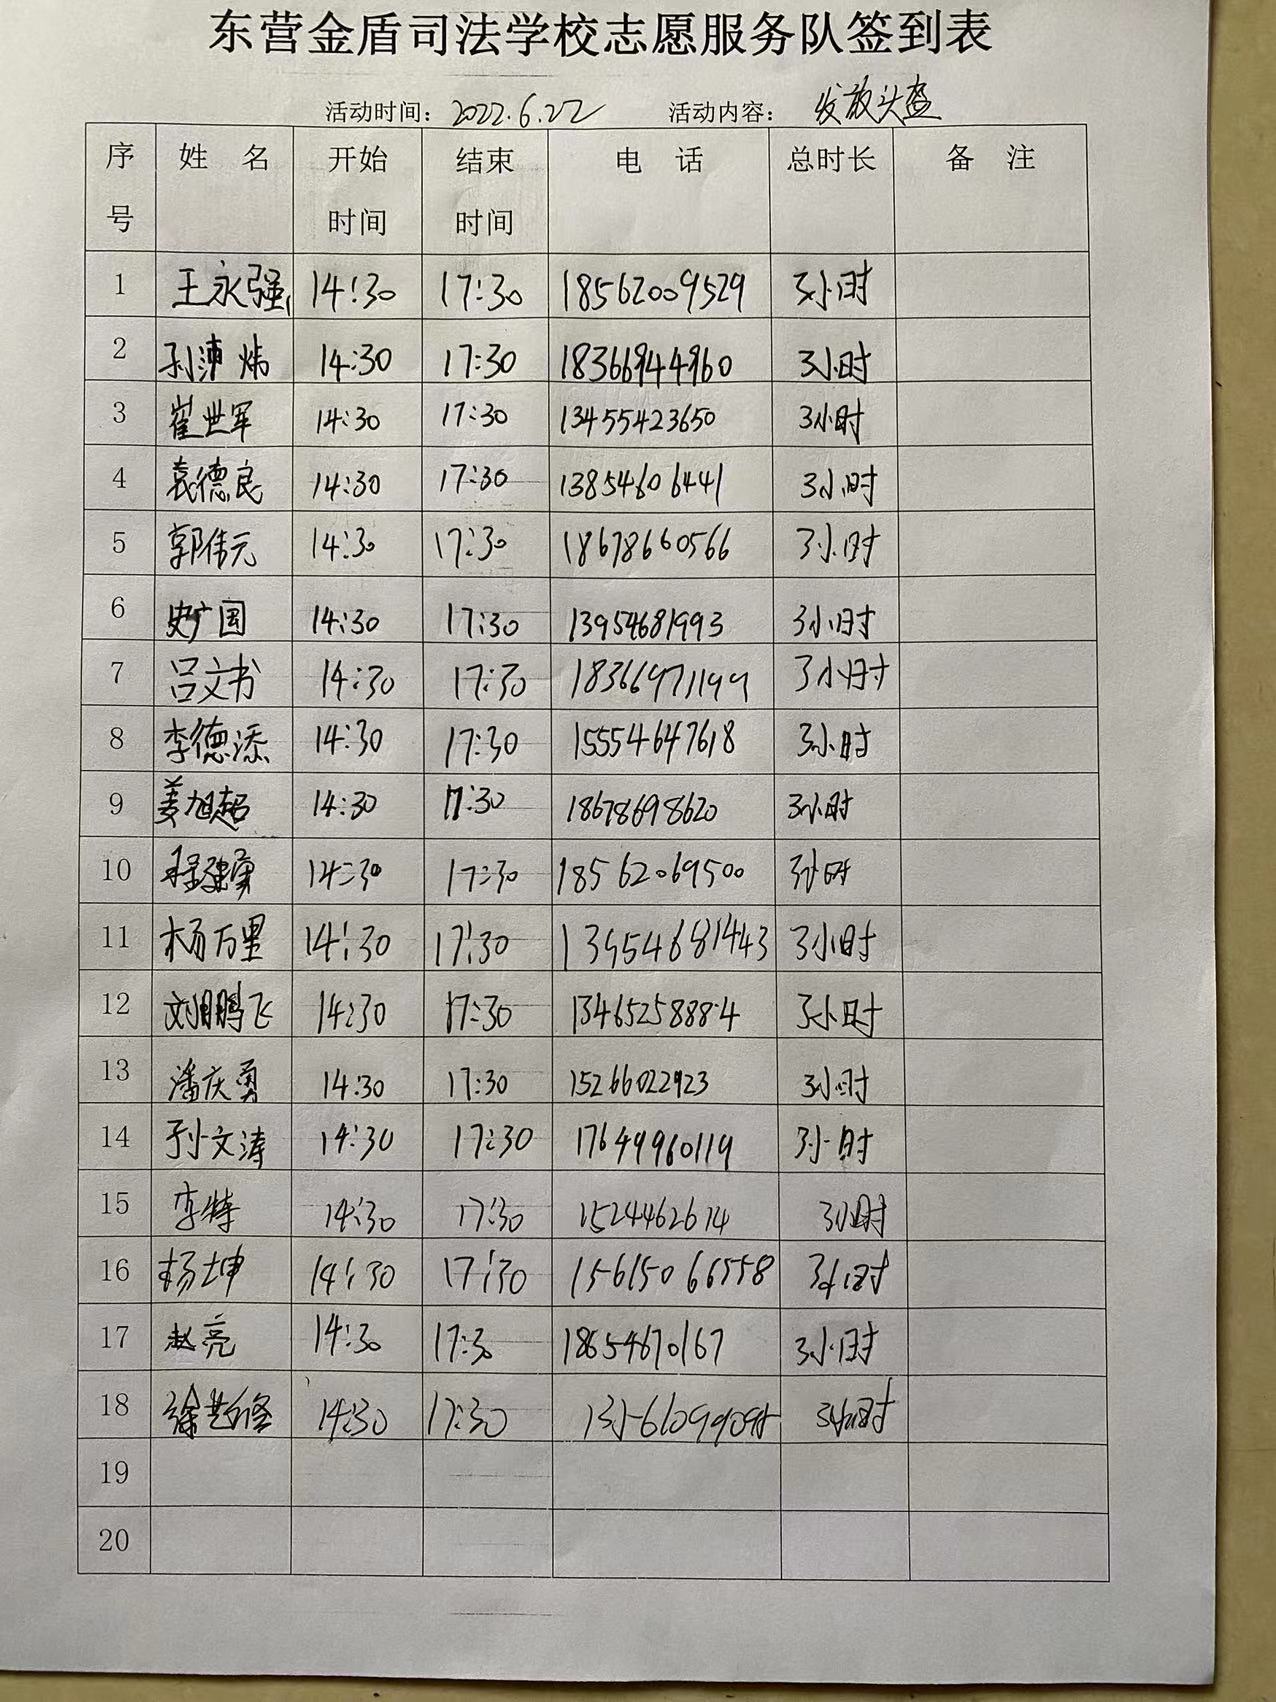 东营金盾司法学校志愿服务队签到表
活动时间：2022.6.22 活动内容：发放头盔
序号 姓 名 开始时间 结束时间 电 话 总时长 备 注
1 王永强 14:30 17:30 18562009529 3小时
2 孙沛炜 14:30 17:30 18366944960 3小时
3 崔世军 14:30 17:30 13455423650 3小时
4 袁德良 14:30 17:30 13854606441 3小时
5 郭伟元 14:30 17:30 18678660566 3小时
6 史广国 14:30 17:30 13954681993 3小时
7 吕文书 14:30 17:30 18366971199 3小时
8 李德添 14:30 17:30 15554647618 3小时
9 姜旭超 14:30 17:30 18678698620 3小时
10 14:30 17:30 18562069500 3小时
11 杨万里 14:30 17:30 13954681443 3小时
12 刘鹏飞 14:30 17:30 13465258884 3小时
13 潘庆勇 14:30 17:30 15266022923 3小时
14 孙文涛 14:30 17:30 17649960119 3小时
15 李特 14:30 17:30 1524462614 3小时
16 杨坤 14:30 17:30 15615066558 3小时
17 赵亮 14:30 17:30 18654670167 3小时
18 14:30 17:30 3小时
19
20